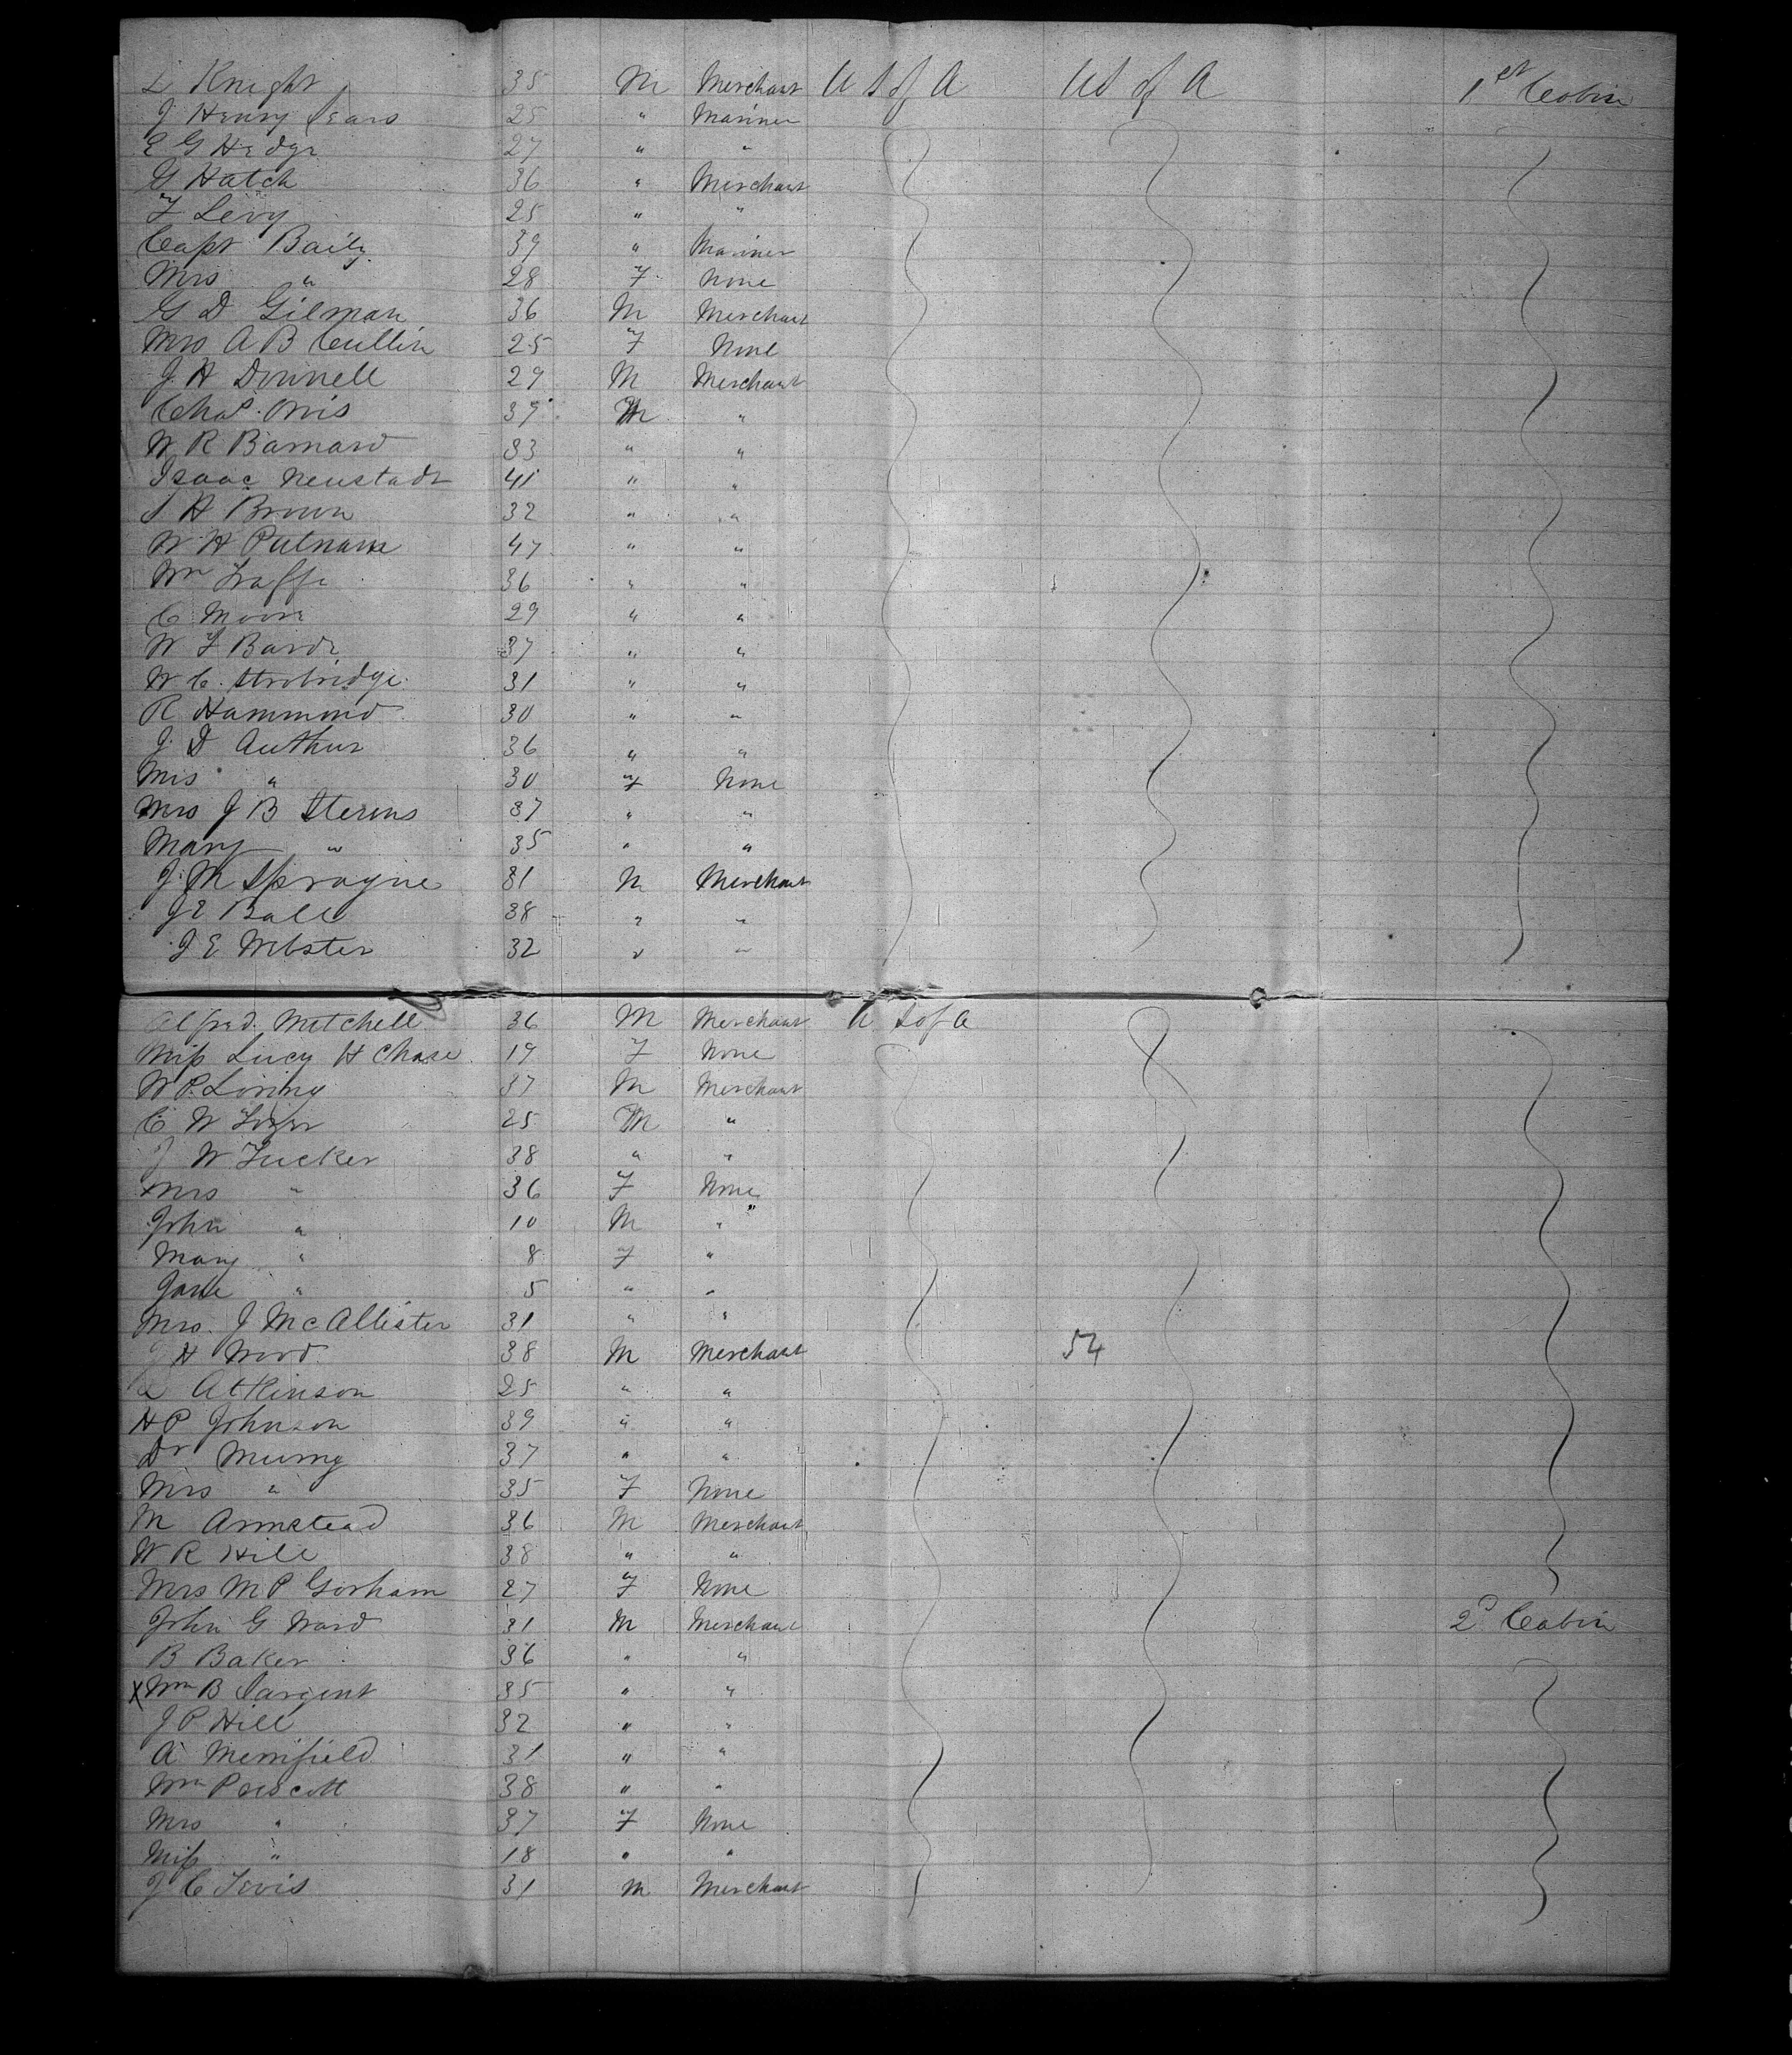 L Knight 35 M Merchant U S of A U S of A 1st Cabin
J Henry Sears 25 " Mariner
E G Hedge 27 " "
G Hatch 36 " Merchant
F Levy 25 " "
Capt Baily 39 " Mariner
Mrs " 28 F None
G D Gilman 36 M Merchant
Mrs A B Cullin 25 F None
J H Donnell 29 M Merchant
Chas. Orvis 37 M "
W R Barnard 33 " "
Isaac Neustadt 41 " "
S H Brown 32 " "
W H Putnam 47 " "
Wm 36 " "
C Moore 29 " "
W F 37 " "
W C. Strobridge 31 " "
R Hammond 30 " "
J. D Authur 36 " "
Mrs " 30 F None
Mrs J B Sterns 37 " "
Mary " 35 " "
J. M Sprague 31 M Merchant
J E Ball 38 " "
J E Webster 32 " "
Alfred. Mitchell 36 M Merchant U S of A
Miss Lucy H Chase 19 F None
W P. Loring 37 M Merchant
C W 25 M "
J W Tucker 38 " "
Mrs " 36 F None
John " 10 M "
Mary " 8 F "
Jane " 5 " "
Mrs. J McAllister 31 " "
J H Wood 38 M Merchant 54
L Atkinson 25 " "
H P Johnson 39 " "
Dr 37 " "
Mrs " 35 F None
M Armstead 36 M Merchant
W R Hill 38 " "
Mrs M P Gorham 27 F None
John G Ward 31 M Merchant 2d Cabin
B Baker 36 " "
X Wm B Sargent 35 " "
J P Hill 32 " "
A Merrifield 31 " "
Wm Prescott 38 " "
Mrs " 37 F None
Miss " 18 " "
J C Tevis 31 M Merchant